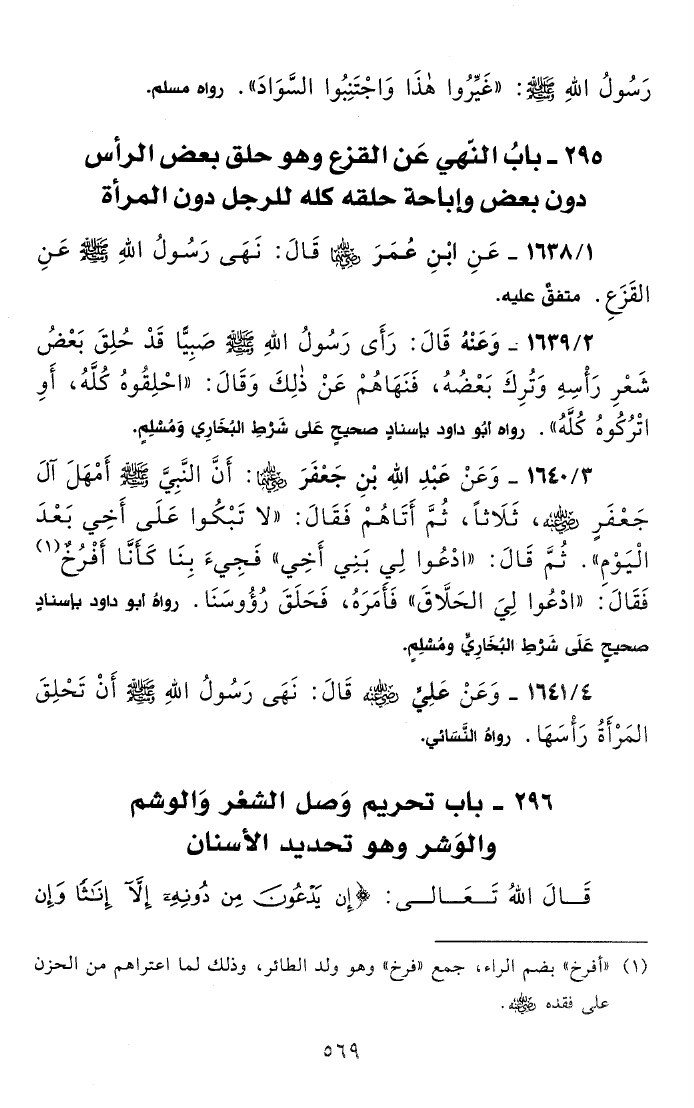 رَسُولُ اللهِ ﷺ: «غَيِّرُوا هٰذَا وَاجْتَنِبُوا السَّوَادَ». رواه مسلم.
٢٩٥ - بابُ النّهي عَن القزع وهو حلق بعض الرأس
دون بعض وإباحة حلقه كله للرجل دون المرأة
١٦٣٨/١ - عَنِ ابْنِ عُمَرَ ﷺ قَالَ: نَهَى رَسُولُ اللهِ ﷺ عَنِ
القَزَعِ. متفقٌ عليه.
١٦٣٩/٢ - وَعَنْهُ قَالَ: رَأَى رَسُولُ اللهِ ﷺ صَبِيًّا قَدْ حُلِقَ بَعْضُ
شَعْرِ رَأْسِهِ وَتُرِكَ بَعْضُهُ، فَنَهَاهُمْ عَنْ ذٰلِكَ وَقَالَ: «احْلِقُوهُ كُلَّهُ، أَوِ
اتْرُكُوهُ كُلَّهُ». رواه أبو داود بإسنادٍ صحيحٍ عَلى شَرْطِ البُخَاري وَمُسْلِمٍ.
١٦٤٠/٣ - وَعَنْ عَبْدِ اللهِ بْنِ جَعْفَرَ رضي الله عنهما: أَنَّ النَّبِيَّ ﷺ أَمْهَلَ آلَ
جَعْفَرٍ رضي الله عنه، ثَلَاثاً، ثُمَّ أَتَاهُمْ فَقَالَ: «لا تَبْكُوا عَلَى أَخِي بَعْدَ
الْيَوْمِ». ثُمَّ قَالَ: «ادْعُوا لِي بَنِي أَخِي» فَجِيءَ بِنَا كَأَنَّا أَفْرُخٌ(١)
فَقَالَ: «ادْعُوا لِيَ الحَلَّاقَ» فَأَمَرَهُ، فَحَلَقَ رُؤُوسَنَا. رواهُ أبو داود بإسنادٍ
صحيحٍ عَلَى شَرْطِ البُخَارِيِّ ومُسْلِمٍ.
١٦٤١/٤ - وَعَنْ عَلِيٍّ رضي الله عنه قَالَ: نَهَى رَسُولُ اللهِ ﷺ أَنْ تَحْلِقَ
المَرْأَةُ رَأْسَهَا. رواهُ النَّسَائي.
٢٩٦ - باب تحريم وَصل الشعْر وَالوشم
والوَشر وهو تحديد الأسنان
قَـالَ اللهُ تَـعَـالـى: ﴿إِن يَدْعُونَ مِن دُونِهِۦٓ إِلَّآ إِنَٰثًا وَإِن
(١) «أفرخ» بضم الراء، جمع «فرخ» وهو ولد الطائر، وذلك لما اعتراهم من الحزن
على فقده رضي الله عنه.
٥٦٩